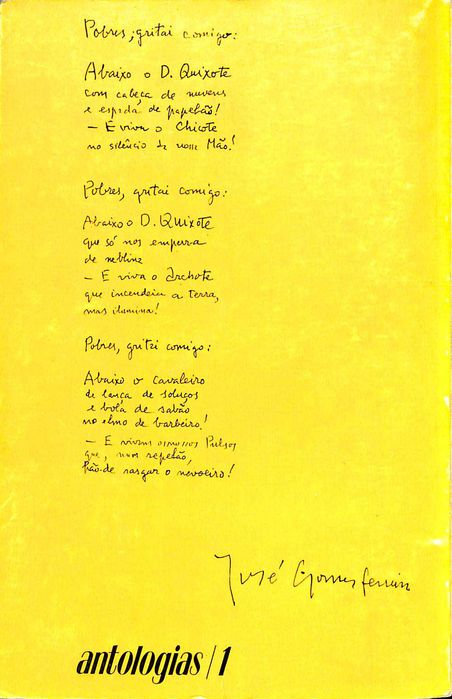 Pobres, gritai comigo:
Abaixo o D. Quixote
com cabeça de nuvens
e espada de papelão!
— E viva o Chicote
no silêncio da nossa Mão!
Pobres, gritai comigo:
Abaixo o D. Quixote
que só nos empurra
de neblina
— E viva o Archote
que incendeia a terra,
mas ilumina!
Pobres, gritai comigo:
Abaixo o cavaleiro
de lança de soluços
e bola de sabão
no elmo de barbeiro!
— E vivam os nossos Pulsos
que, num repelão,
hão-de rasgar o nevoeiro!
José Gomes Ferreira
antologias/1